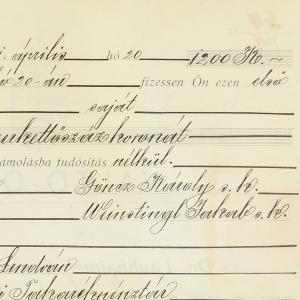 április hó 20 1200 K. ~
20-án fizessen Ön ezen első
saját
kettőszáz koronát
számolásba tudósítás nélkül.
Göncz Károly s. k.
Weinstingl Jakab s. k.
Lendván
Takarékpénztár